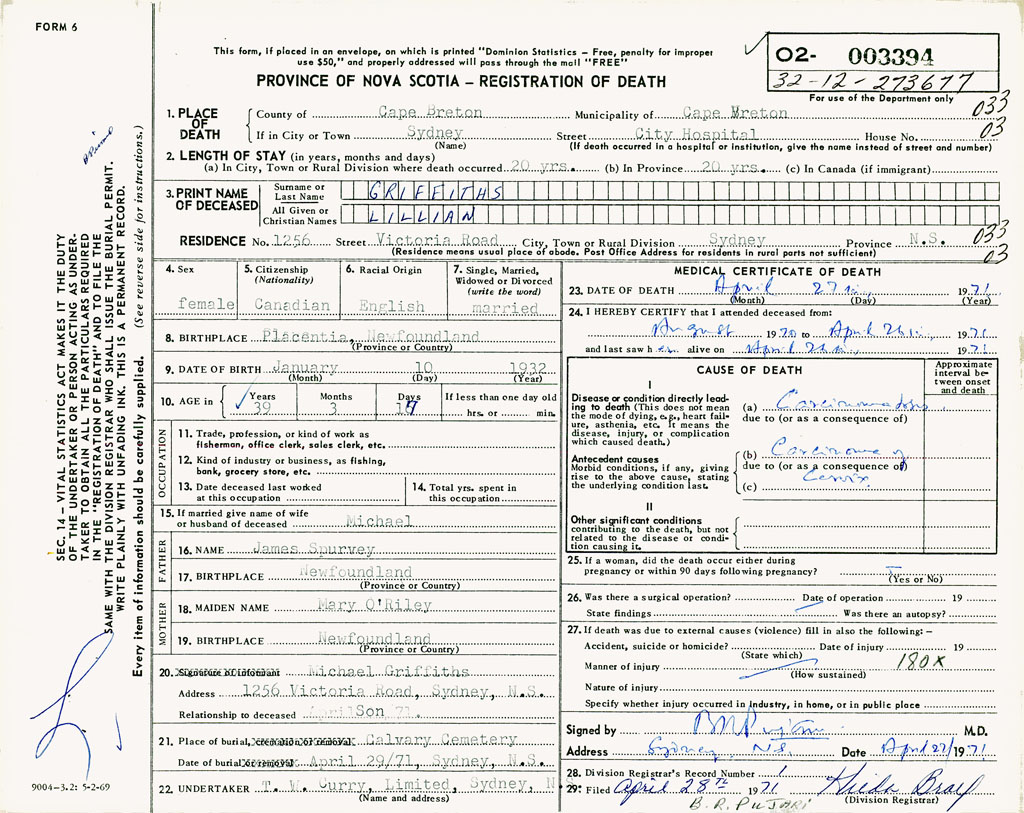 FORM 6
This form, if placed in an envelope, on which is printed "Dominion Statistics – Free, penalty for improper
use $50," and properly addressed will pass through the mail "FREE"
PROVINCE OF NOVA SCOTIA – REGISTRATION OF DEATH
02- 003394
32-12-273677
For use of the Department only
SEC. 14 – VITAL STATISTICS ACT MAKES IT THE DUTY
OF THE UNDERTAKER OR PERSON ACTING AS UNDER-
TAKER TO OBTAIN ALL THE PARTICULARS REQUIRED
IN THE "REGISTRATION OF DEATH" AND TO FILE THE
SAME WITH THE DIVISION REGISTRAR WHO SHALL ISSUE THE BURIAL PERMIT.
WRITE PLAINLY WITH UNFADING INK. THIS IS A PERMANENT RECORD.
Every item of information should be carefully supplied. (See reverse side for instructions.)
1. PLACE OF DEATH
County of Cape Breton Municipality of Cape Breton 033
If in City or Town Sydney Street City Hospital House No. 03
(Name) (If death occurred in a hospital or institution, give the name instead of street and number)
2. LENGTH OF STAY (in years, months and days)
(a) In City, Town or Rural Division where death occurred 20 yrs. (b) In Province 20 yrs. (c) In Canada (if immigrant)
3. PRINT NAME OF DECEASED
Surname or Last Name GRIFFITHS
All Given or Christian Names LILLIAN
RESIDENCE No. 1256 Street Victoria Road City, Town or Rural Division Sydney Province N.S. 033
(Residence means usual place of abode. Post Office Address for residents in rural parts not sufficient) 03
4. Sex
female
5. Citizenship (Nationality)
Canadian
6. Racial Origin
English
7. Single, Married, Widowed or Divorced (write the word)
married
8. BIRTHPLACE Placentia, Newfoundland
(Province or Country)
9. DATE OF BIRTH January 10 1932
(Month) (Day) (Year)
10. AGE in Years Months Days If less than one day old
39 3 17 hrs. or min.
OCCUPATION
11. Trade, profession, or kind of work as
fisherman, office clerk, sales clerk, etc.
12. Kind of industry or business, as fishing,
bank, grocery store, etc.
13. Date deceased last worked
at this occupation
14. Total yrs. spent in
this occupation
15. If married give name of wife
or husband of deceased Michael
FATHER
16. NAME James Spurvey
17. BIRTHPLACE Newfoundland
(Province or Country)
MOTHER
18. MAIDEN NAME Mary O'Riley
19. BIRTHPLACE Newfoundland
(Province or Country)
20. Signature of informant Michael Griffiths
Address 1256 Victoria Road, Sydney, N.S.
Relationship to deceased Son
21. Place of burial, cremation or removal Calvary Cemetery
Date of burial or removal April 29/71, Sydney, N.S.
22. UNDERTAKER T. W. Curry, Limited, Sydney, N.S.
(Name and address)
MEDICAL CERTIFICATE OF DEATH
23. DATE OF DEATH April 27 1971
(Month) (Day) (Year)
24. I HEREBY CERTIFY that I attended deceased from:
August 1970 to April 1971
and last saw her alive on April 1971
CAUSE OF DEATH
Approximate interval between onset and death
I
Disease or condition directly lead-
ing to death (This does not mean
the mode of dying, e.g., heart fail-
ure, asthenia, etc. It means the
disease, injury, or complication
which caused death.)
(a) Carcinomatosis
due to (or as a consequence of)
Antecedent causes
Morbid conditions, if any, giving
rise to the above cause, stating
the underlying condition last.
(b) Carcinoma of
due to (or as a consequence of)
(c) Cervix
II
Other significant conditions
contributing to the death, but not
related to the disease or condi-
tion causing it.
25. If a woman, did the death occur either during
pregnancy or within 90 days following pregnancy?
(Yes or No)
26. Was there a surgical operation? Date of operation 19
State findings Was there an autopsy?
27. If death was due to external causes (violence) fill in also the following:–
Accident, suicide or homicide? Date of injury 19
(State which)
Manner of injury 180X
(How sustained)
Nature of injury
Specify whether injury occurred in industry, in home, or in public place
Signed by M.D.
Address Sydney N.S. Date April 27/1971
28. Division Registrar's Record Number 1
29. Filed April 28TH 1971 Hilda Bray
B. R. PUJARI (Division Registrar)
9004-3.2: 5-2-69